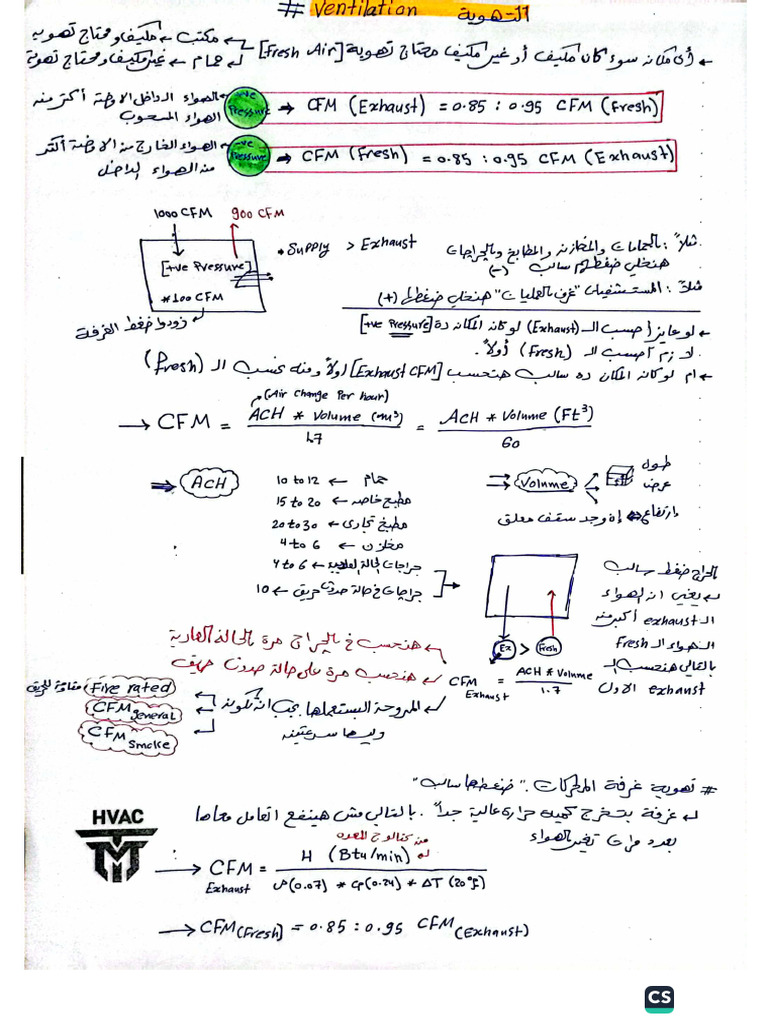 # Ventilation التهوية
← أى مكان سواء كان مكيف أو غير مكيف محتاج تهوية [Fresh Air] ← مكتب ← مكيف ومحتاج تهوية
← حمام ← غير مكيف ومحتاج تهوية
+ve Pressure → CFM (Exhaust) = 0.85 : 0.95 CFM (Fresh)
← الهواء الداخل الأوضة أكتر من الهواء المسحوب
-ve Pressure → CFM (Fresh) = 0.85 : 0.95 CFM (Exhaust)
← الهواء الخارج من الأوضة أكتر من الهواء الداخل
1000 CFM 900 CFM
[+ve Pressure]
* 100 CFM
زودوا ضغط الغرفة
• Supply > Exhaust
مثلاً : الحمامات والمخازن والمطابخ والجراجات
هنخلي ضغطهم سالب (-)
مثلاً : المستشفيات "غرف العمليات" هنخلي ضغطها (+)
← لو عايز أحسب الـ (Exhaust) لو كان المكان ده [+ve Pressure]
لازم أحسب الـ (Fresh) أولاً.
← أم لو كان المكان ده سالب هنحسب [Exhaust CFM] أولاً ومنه نحسب الـ (Fresh)
(Air Change Per hour)
→ CFM = ACH * Volume (m³) / 1.7 = ACH * Volume (Ft³) / 60
⇒ ACH
حمام → 10 to 12
مطبخ خاص → 15 to 20
مطبخ تجارى → 20 to 30
مخازن → 4 to 6
جراجات الحالة العادية → 4 to 6
جراجات في حالة حدوث حريق → 10
Volume
طول
عرض
إرتفاع ⇔ إن وجد سقف معلق
الجراج ضغط سالب
يعني ان الهواء
الـ exhaust أكبر من
الهواء الـ Fresh
بالتالي هنحسب الـ
exhaust الاول
Ex > Fresh
CFM Exhaust = ACH * Volume / 1.7
← هنحسب في الجراج مرة بالحالة العادية
← هنحسب مرة على حالة حدوث حريق
← المروحة البستعملها يجب ان تكون
وليها سرعتين
Fire rated مقاومة للحريق
CFM general
CFM smoke
# تهوية غرفة المحركات. "ضغطها سالب"
← غرفة بتخرج كمية حرارى عالية جداً. بالتالي مش هينفع اتعامل معاها
بعدد مرات تغير الهواء
HVAC
TM
من كتالوج المعده
→ CFM Exhaust = H (Btu/min) / ρ(0.07) * Cp(0.24) * ΔT (20°F)
→ CFM (Fresh) = 0.85 : 0.95 CFM (Exhaust)
CS